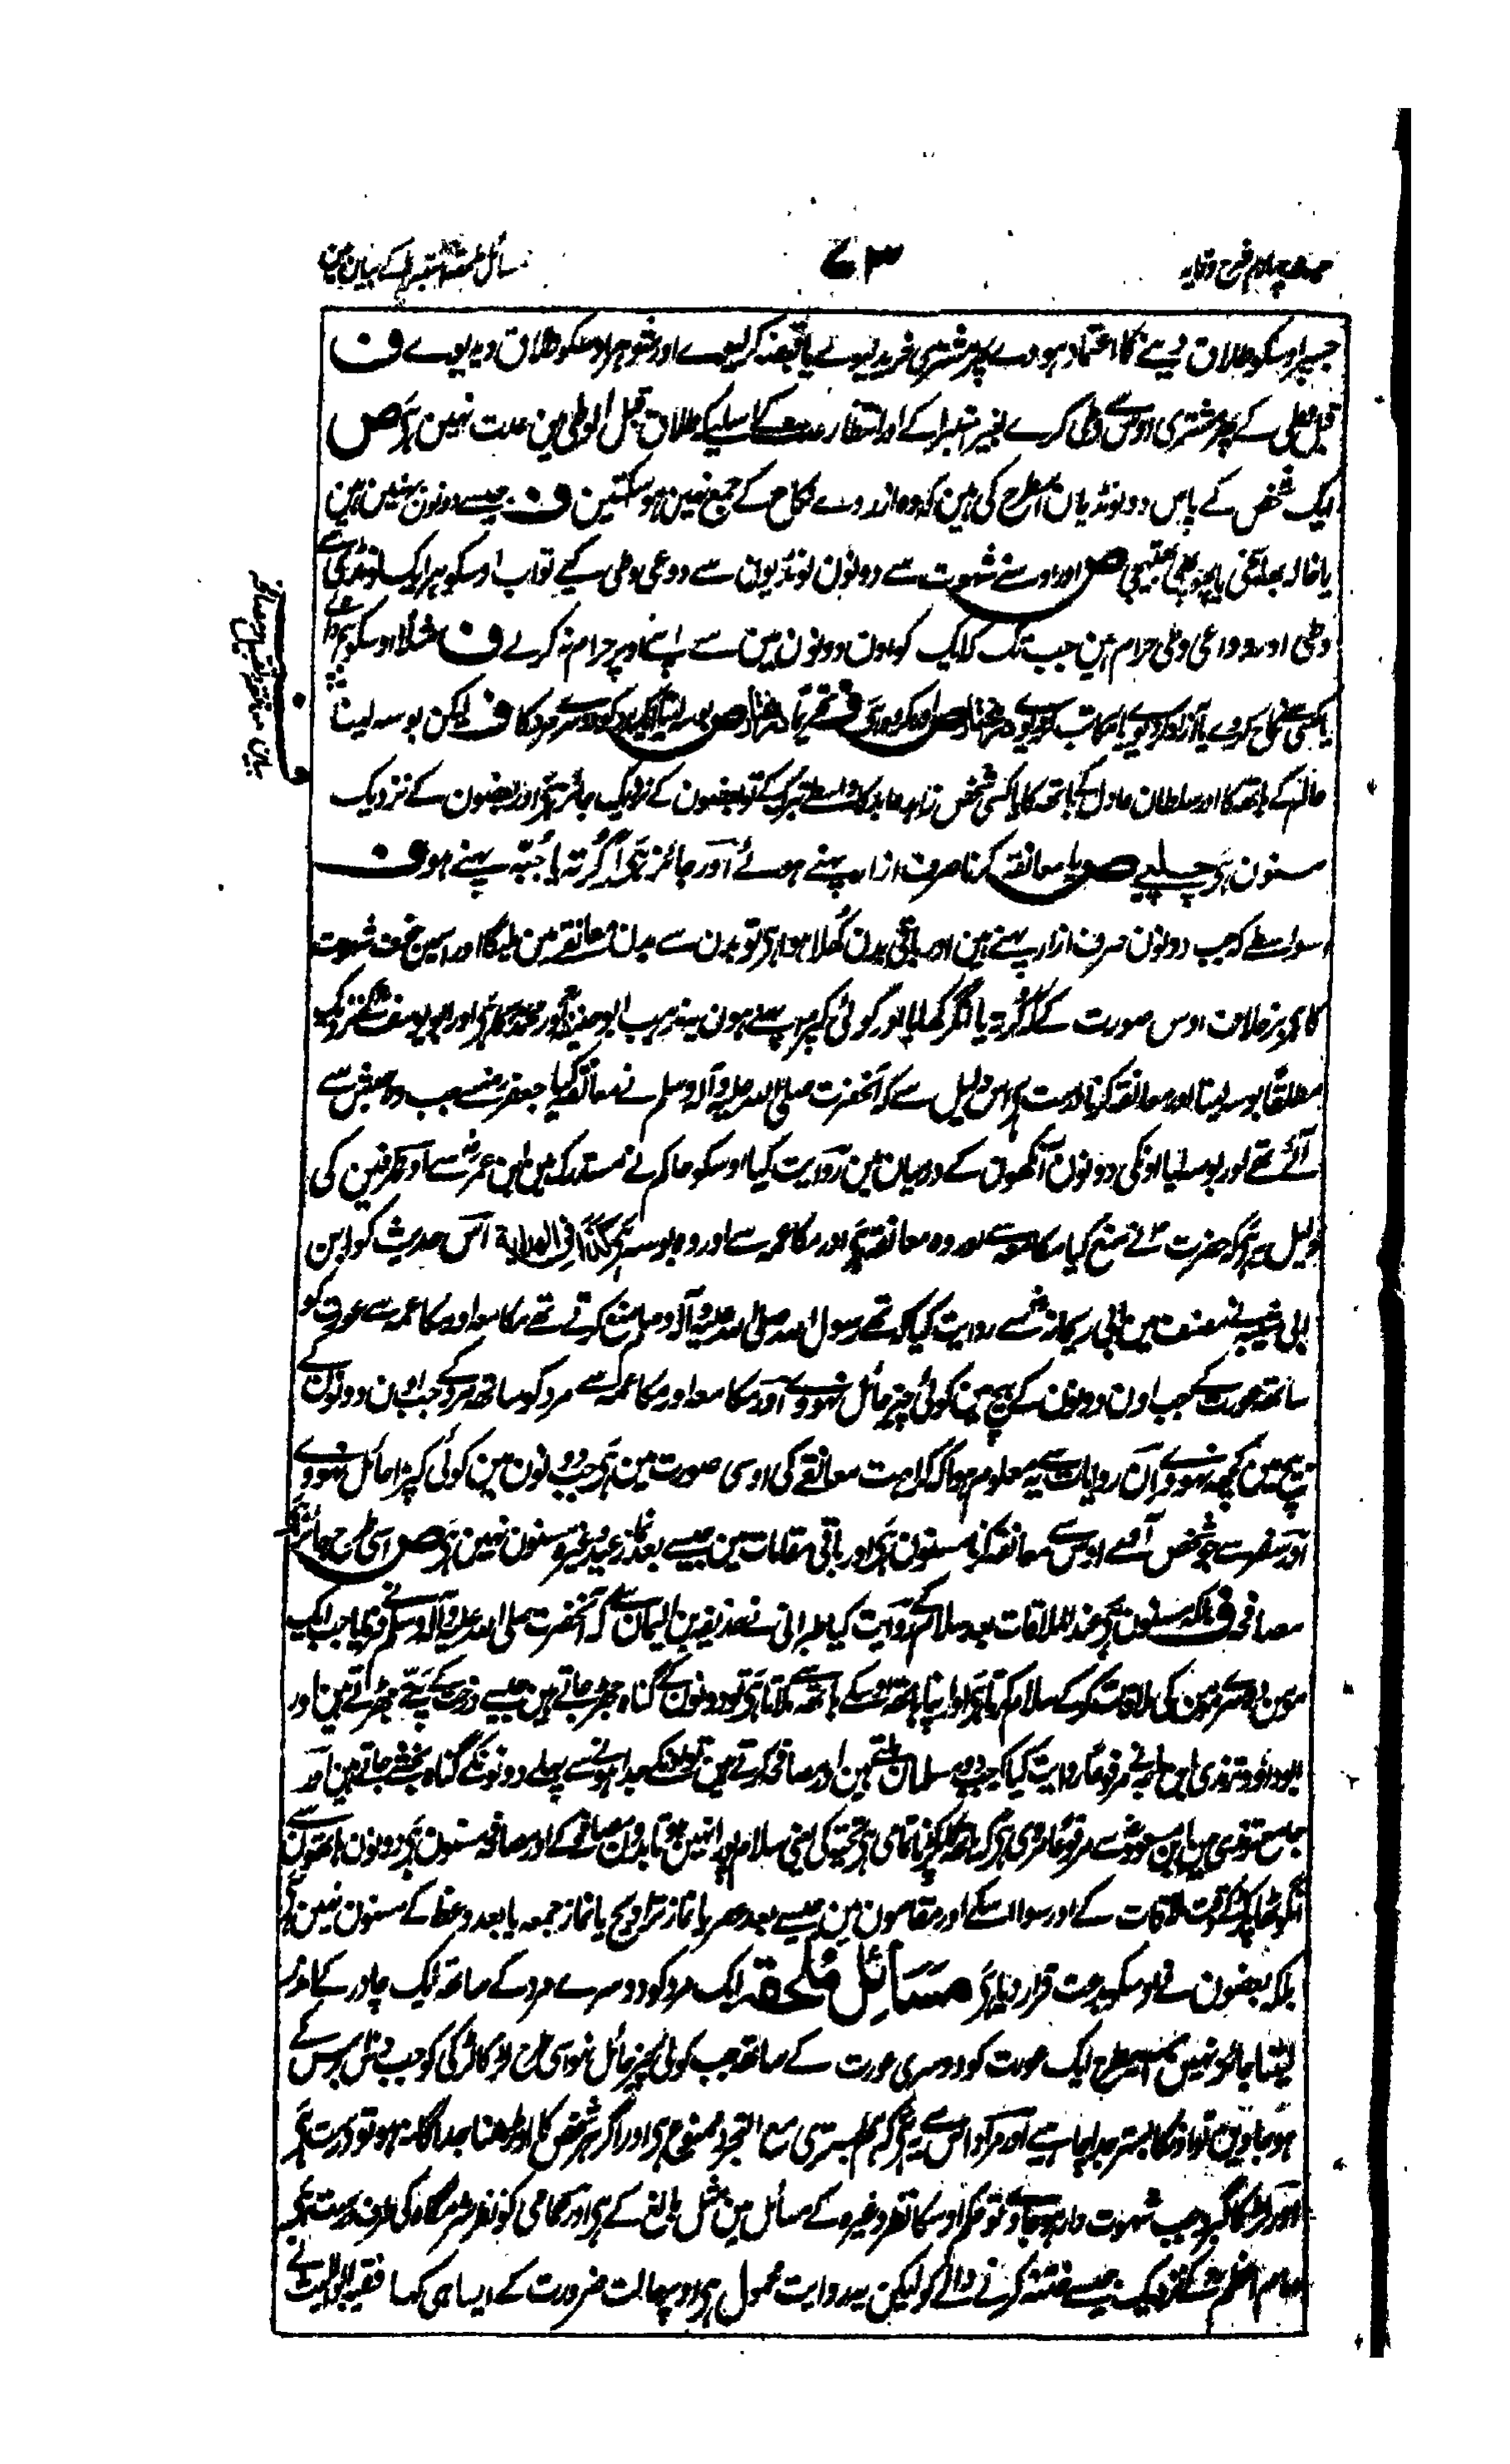 جلد چہارم شرح وقایہ
۷۳
مسائل متفرقہ استبرا کے بیان مین
جسپر اوسکو طلاق دینے کا اعتماد ہووے پھر مشتری خرید لیوے یا قبضہ کر لیوے اور شوہر اوسکو طلاق دیدیوے ف
قبل وطی کے پھر مشتری اوس سے وطی کرے بغیر استبرا کے اور انتظار عدت کا اسلیے کہ طلاق قبل الوطی مین عدت نہین ہے ص
ایک شخص کے پاس دو لونڈیان اسطرح کی ہین کہ وہ از روے نکاح کے جمع نہین ہوسکتین ف جیسے دونون بہنین ہین
یا خالہ بھانجی یا پھوپھی بھتیجی ص اور اوسنے شہوت سے دونون لونڈیون سے دواعی وطی کیے تو اب اوسکو ہر ایک لونڈی سے
وطی اور دواعی وطی حرام ہین جب تک کہ ایک کو اون دونون مین سے اپنے اوپر حرام نہ کرے ف مثلا اوسکو بیچ ڈالے
یا کسی سے نکاح کردے یا آزاد کردیوے یا مکاتب کردیوے ص اور مکروہ ہے ف ص بوسہ لینا ایک مرد کو دوسرے مرد کا ف لیکن بوسہ لینا
عالم کے ہاتھ کا اور سلطان عادل کے ہاتھ کا یا کسی شخص زاہد عابد کا واسطے تبرک کے تو بعضون کے نزدیک جائز ہے اور بعضون کے نزدیک
مسنون ہے چلپی ص یا معانقہ کرنا صرف ازار پہنے ہوئے اور جائز ہے اگر کُرتہ یا جُبّہ پہنے ہو ف
اسواسطے کہ جب دونون صرف ازار پہنے ہین اور باقی بدن کُھلا ہوا ہے تو بدن سے بدن معانقے مین ملیگا اور اسمین خوف شہوت
کا ہے برخلاف اوس صورت کے کہ کُرتہ یا انگرکھا یا اور کوئی کپڑا پہنے ہون یہ مذہب ابو حنیفہؒ اور محمدؒ کا ہے اور ابو یوسفؒ کے نزدیک
مطلقًا بوسہ لینا اور معانقہ کرنا درست ہے اس دلیل سے کہ آنحضرت صلی اللہ علیہ وآلہ وسلم نے معانقہ کیا جعفرؓ سے جب وہ حبش سے
آئے تھے اور بوسہ لیا اونکی دونون آنکھون کے درمیان مین روایت کیا اوسکو حاکم نے مستدرک مین ابن عمرؓ سے اور طرفین کی
دلیل یہ ہے کہ حضرتؐ نے منع کیا مکامعہ سے اور وہ معانقہ ہے اور مکاعمہ سے اور وہ بوسہ ہے کذا فی الہدایۃ اس حدیث کو ابن
ابی شیبہ نے مصنف مین ابی ریحانہؓ سے روایت کیا کہ تھے رسول اللہ صلی اللہ علیہ وآلہ وسلم منع کرتے تھے مکامعہ اور مکاعمہ سے عورت کو
ساتھ عورت کے جب اون دونون کے بیچ مین کوئی چیز حائل نہووے اور مکامعہ اور مکاعمہ سے مرد کو ساتھ مرد کے جب اون دونون کے
بیچ مین کچھ نہووے ان روایات سے یہ معلوم ہوا کہ کراہت معانقے کی اوسی صورت مین ہے جب دونون مین کوئی کپڑا حائل نہووے
اور سفر سے جو شخص آوے اوس سے معانقہ کرنا مسنون ہے اور باقی مقامات مین جیسے بعد نماز عید وغیرہ مسنون نہین ہے ص اسی طرح جائز ہے
مصافحہ ف بلکہ مسنون ہے عند الملاقات بعد سلام کے روایت کیا طبرانی نے حذیفہ بن الیمان سے کہ آنحضرت صلی اللہ علیہ وآلہ وسلم نے فرمایا جب ایک
مومن دوسرے مومن کی ملاقات کرکے سلام کرتا ہے اور اپنا ہاتھ اوسکے ہاتھ سے ملاتا ہے تو دونون کے گناہ جھڑ جاتے ہین جیسے درخت کے پتّے جھڑتے ہین اور
ابو داؤد و ترمذی ابن ماجہ نے مرفوعًا روایت کیا کہ جب دو مسلمان ملتے ہین اور مصافحہ کرتے ہین تو اونکے جدا ہونے سے پہلے دونونکے گناہ بخشے جاتے ہین اور
جامع ترمذی مین ابن مسعودؓ سے مرفوعًا مروی ہے کہ ہاتھ پکڑنا تمامی ہے تحیۃ کی یعنی سلام پورا نہین ہوتا بدون مصافحے کے اور مصافحہ مسنون ہے دونون ہاتھون سے
انگوٹھا پکڑکے وقت ملاقات کے اور سوا اسکے اور مقامون مین جیسے بعد عصر یا نماز تراویح یا نماز جمعہ یا بعد وعظ کے مسنون نہین ہے
بلکہ بعضون نے اوسکو بدعت قرار دیا ہے مسائل ملحقہ ایک مرد کو دوسرے مرد کے ساتھ ایک چادر کے اندر
لیٹنا جائز نہین اسیطرح ایک عورت کو دوسری عورت کے ساتھ جب کوئی چیز حائل نہو اسی طرح لڑکا لڑکی کو جب دس برس کے
ہوجاوین تو اونکا بستر جدا چاہیے اور مراد اس سے یہ ہے کہ ہم بستری مع التجرد ممنوع ہے اور اگر ہر شخص کا اوڑھنا جداگانہ ہو تو درست ہے
اور لڑکا کبیر جب شہوت دار ہوجاوے تو حکم اوسکا نظر وغیرہ کے مسائل مین مثل بالغ کے ہے اور حمامی کو نظر شرمگاہ کی طرف درست ہے
امام اعظمؒ کے نزدیک جیسے ختنہ کرنے والے کو لیکن یہ روایت محمول ہے اوپر حالت ضرورت کے ایسا ہی کہا فقیہ ابو اللیث نے